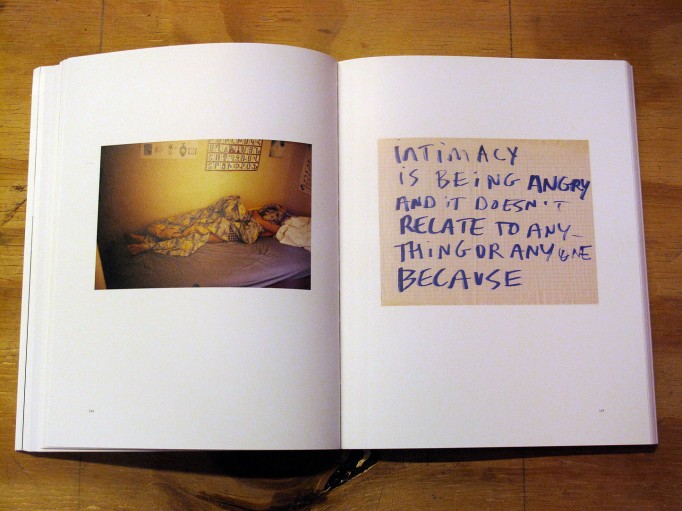 INTIMACY
IS BEING ANGRY
AND IT DOESN'T
RELATE TO ANY-
THING OR ANYONE
BECAUSE